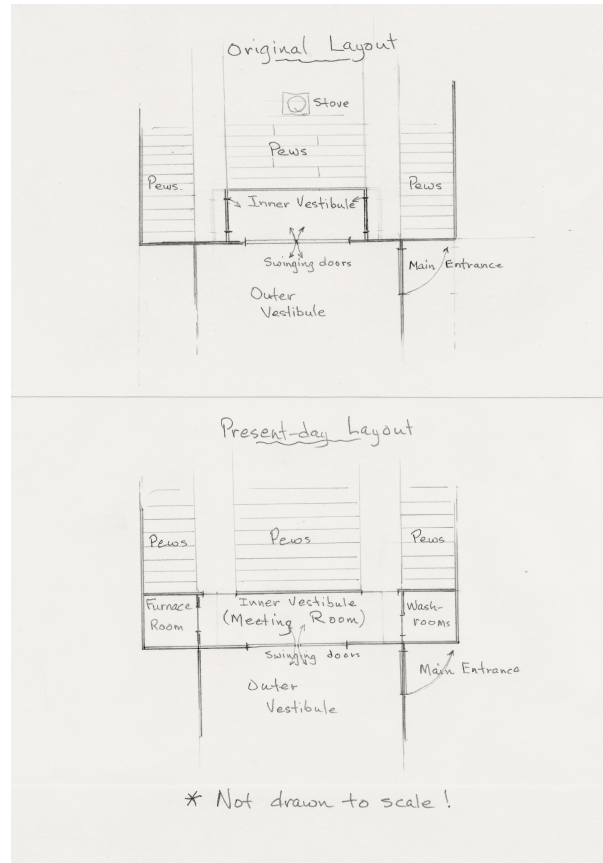 Original Layout
Stove
Pews
Pews.
Pews
Inner Vestibule
Swinging doors
Main Entrance
Outer
Vestibule
Present-day Layout
Pews
Pews
Pews
Furnace
Room
Inner Vestibule
(Meeting Room)
Wash-
rooms
Swinging doors
Main Entrance
Outer
Vestibule
* Not drawn to scale!